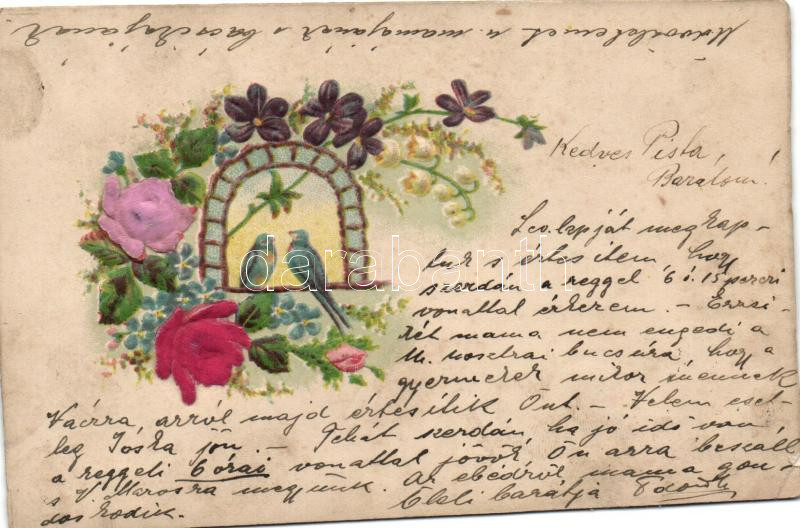 Üdvözletemet a mamájának s bácsikájának
Kedves Pista,
Barátom!
Lev. lapját megkap-
tuk s értesítem, hogy
szerdán a reggel 6 ó. 15 perczi
vonattal érkezem. - Erzsi-
két mama nem engedi a
M. nosztrai bucsúra, hogy a
gyermekek mikor mennek
Váczra, arról majd értesítik Önt. - Velem eset-
leg Joska jön. - Tehát szerdán, ha jó idő van
a reggeli 6 órai vonattal jövök, Ön arra beszáll
s V. Marosra megyünk. Az ebédről mama gon-
doskodik. Öleli barátja
darabanth